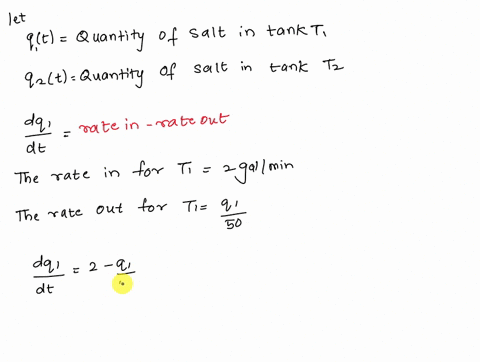 let
q₁(t) = Quantity of salt in tank T₁
q₂(t) = Quantity of salt in tank T₂
dq₁/dt = rate in - rate out
The rate in for T₁ = 2 gal/min
The rate out for T₁ = q₁/50
dq₁/dt = 2 - q₁/